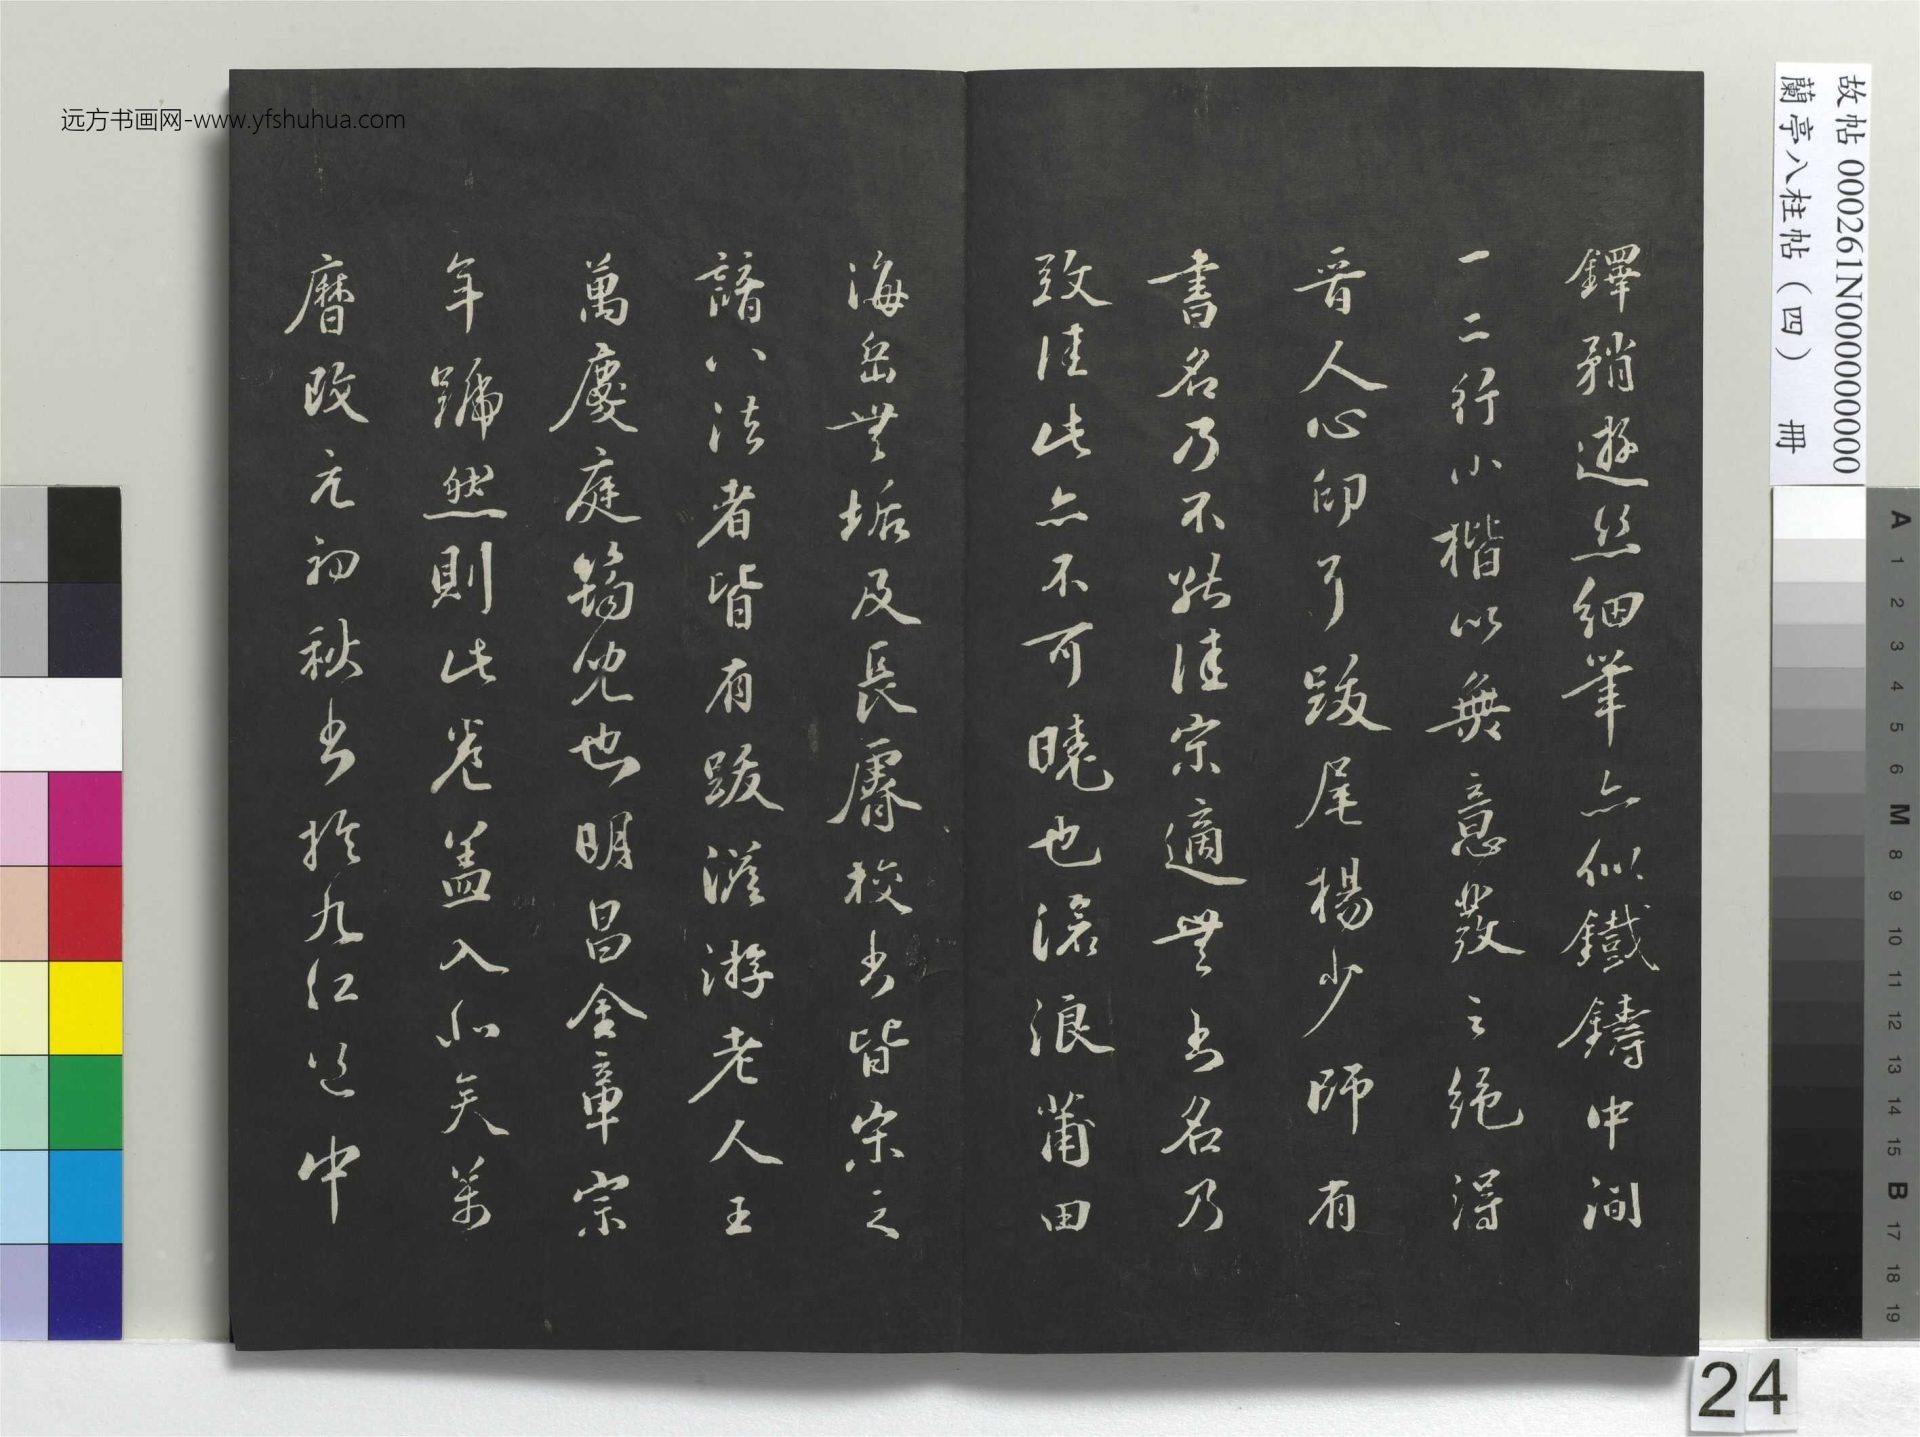 远方书画网-www.yfshuhua.com
故帖 000261N000000000
蘭亭八柱帖（四） 冊
鐸稍遊絲細筆亦似鐵鑄中間
一二行小楷以無意發之絕得
晉人心印了跋尾楊少師有
書名乃不能佳宋適無書名乃
致佳此亦不可曉也滄浪莆田
海岳無垢及長睿校書皆宋之
諳八法者皆有跋澹游老人王
萬慶庭筠兒也明昌金章宗
年號然則此卷蓋入北矣萬
曆改元初秋書於九江道中
A 1 2 3 4 5 6 M 8 9 10 11 12 13 14 15 B 17 18 19
24